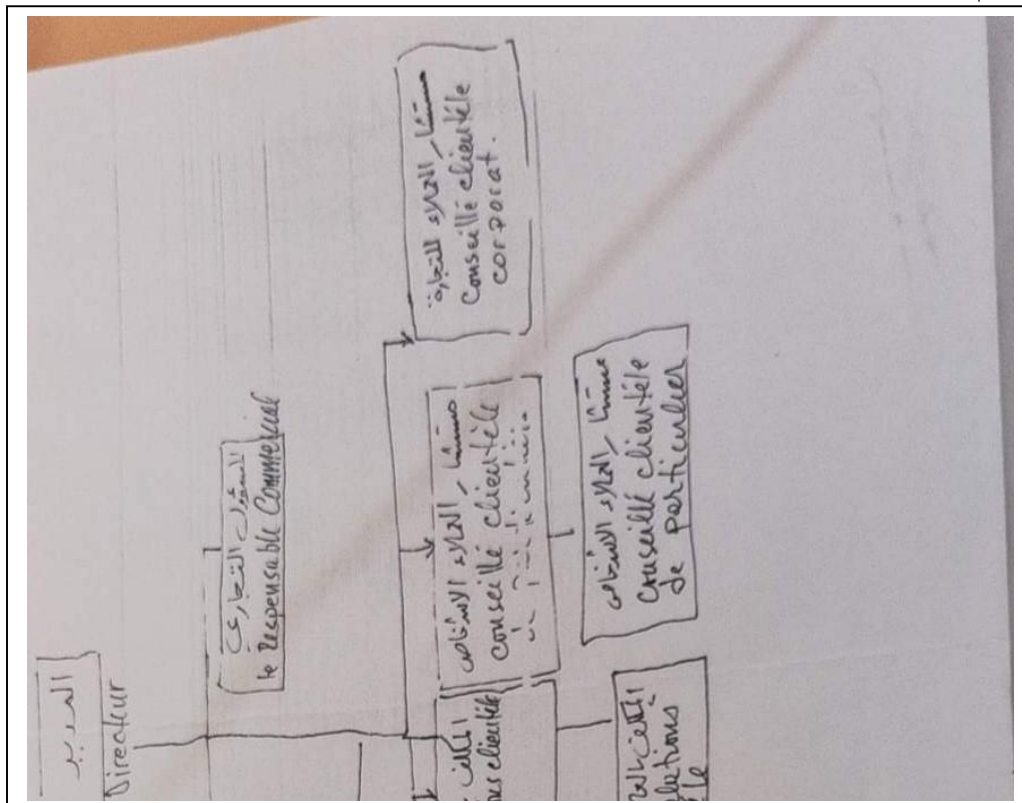 المدير
Directeur
المسؤول التجاري
le Responsable Commercial
مستشار العملاء التجارة
Conseillé clientèle
corporat.
مستشار العملاء الأشخاص
conseillé clientèle
مستشار العملاء الأشخاص
Conseillé clientèle
de particulier
clientèle